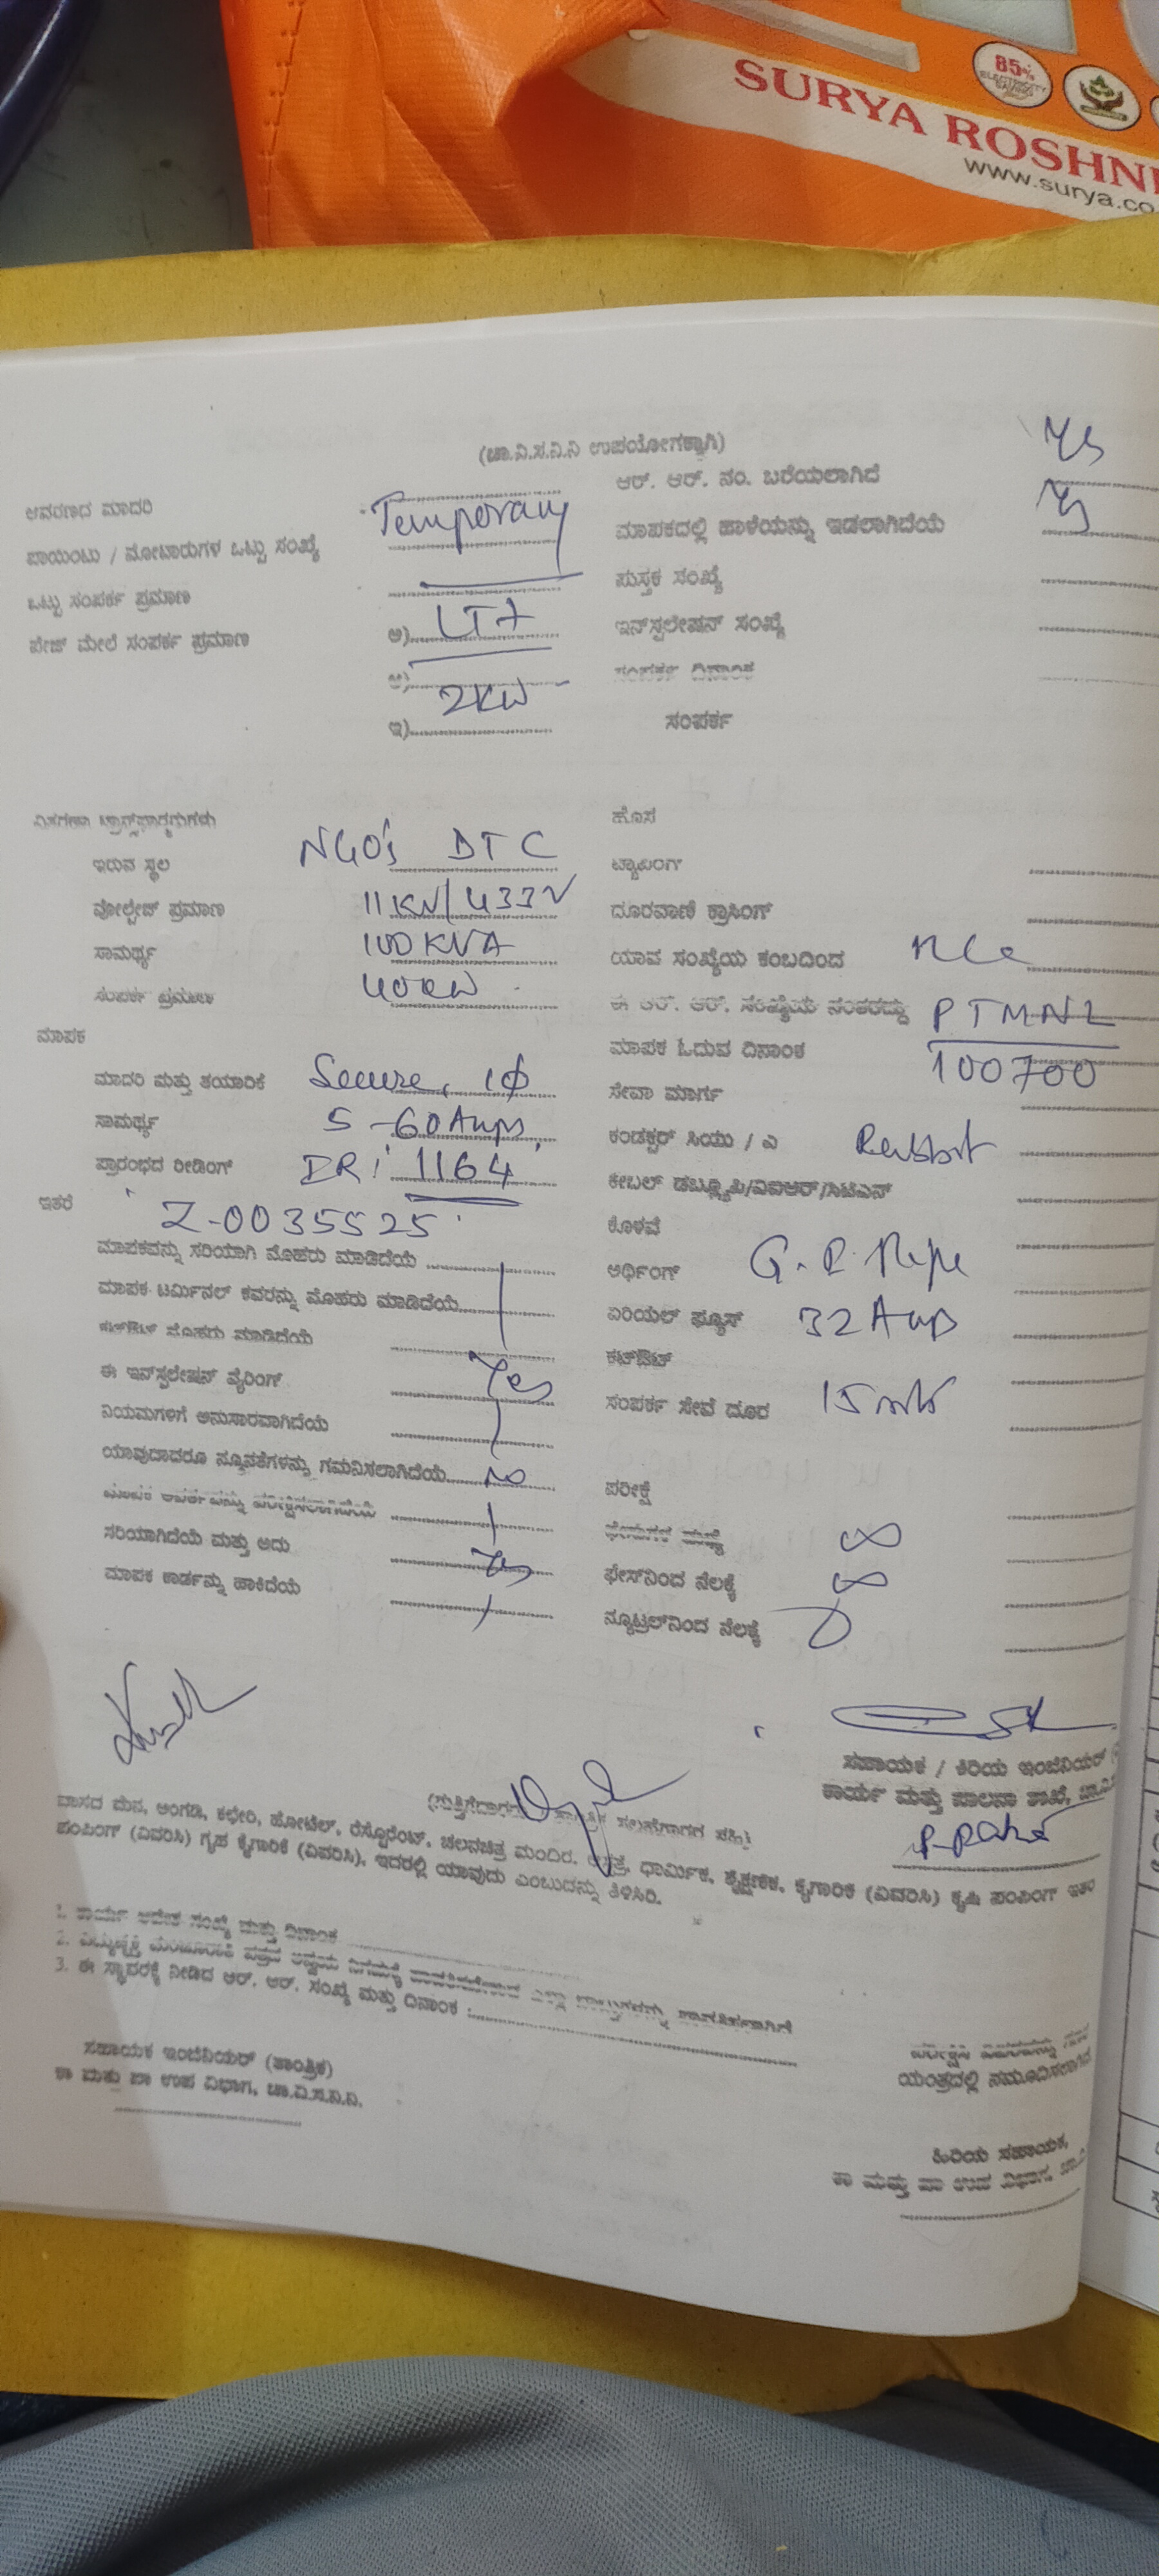 85%
ELECTRICITY
SURYA ROSHNI
www.surya.co
(ಚಾ.ವಿ.ಸ.ನಿ.ನಿ ಉಪಯೋಗಕ್ಕಾಗಿ)
ಆವರಣದ ಮಾದರಿ Temporary
ಪಾಯಿಂಟು / ಮೋಟಾರುಗಳ ಒಟ್ಟು ಸಂಖ್ಯೆ
ಒಟ್ಟು ಸಂಪರ್ಕ ಪ್ರಮಾಣ
ಪೇಜ್ ಮೇಲೆ ಸಂಪರ್ಕ ಪ್ರಮಾಣ ಅ) LT7
ಆ) 2KW
ಇ)
ಆರ್. ಆರ್. ನಂ. ಬರೆಯಲಾಗಿದೆ Yes
ಮಾಪಕದಲ್ಲಿ ಹಾಳೆಯನ್ನು ಇಡಲಾಗಿದೆಯೆ Yes
ಪುಸ್ತಕ ಸಂಖ್ಯೆ
ಇನ್‌ಸ್ಟಲೇಷನ್ ಸಂಖ್ಯೆ
ಸಂಪರ್ಕ ದಿನಾಂಕ
ಸಂಪರ್ಕ
ವಿತರಣಾ ಟ್ರಾನ್ಸ್‌ಫಾರ್ಮರುಗಳು
ಇರುವ ಸ್ಥಳ NGO's DTC
ವೋಲ್ಟೇಜ್ ಪ್ರಮಾಣ 11KV/433V
ಸಾಮರ್ಥ್ಯ 100KVA
ಸಂಪರ್ಕ ಪ್ರಮಾಣ 40KW
ಮಾಪಕ
ಮಾದರಿ ಮತ್ತು ತಯಾರಿಕೆ Secure, 1ϕ
ಸಾಮರ್ಥ್ಯ 5-60Amps
ಪ್ರಾರಂಭದ ರೀಡಿಂಗ್ IR: 1164
ಇತರೆ Z-0035525
ಮಾಪಕವನ್ನು ಸರಿಯಾಗಿ ಮೊಹರು ಮಾಡಿದೆಯೆ
ಮಾಪಕ ಟರ್ಮಿನಲ್ ಕವರನ್ನು ಮೊಹರು ಮಾಡಿದೆಯೆ
ಕಟ್‌ಔಟ್ ಮೊಹರು ಮಾಡಿದೆಯೆ
ಈ ಇನ್‌ಸ್ಟಲೇಷನ್ ವೈರಿಂಗ್ Yes
ನಿಯಮಗಳಿಗೆ ಅನುಸಾರವಾಗಿದೆಯೆ
ಯಾವುದಾದರೂ ನ್ಯೂನತೆಗಳನ್ನು ಗಮನಿಸಲಾಗಿದೆಯೆ No
ಸರಿಯಾಗಿದೆಯೆ ಮತ್ತು ಅದು Yes
ಮಾಪಕ ಕಾರ್ಡನ್ನು ಹಾಕಿದೆಯೆ
ಹೊಸ
ಟ್ಯಾಪಿಂಗ್
ದೂರವಾಣಿ ಕ್ರಾಸಿಂಗ್
ಯಾವ ಸಂಖ್ಯೆಯ ಕಂಬದಿಂದ
ಈ ಆರ್. ಆರ್. ಸಂಖ್ಯೆಯ ನಂತರದ್ದು PTMNL
ಮಾಪಕ ಓದುವ ದಿನಾಂಕ 100700
ಸೇವಾ ಮಾರ್ಗ
ಕಂಡಕ್ಟರ್ ಸಿಯು / ಎ
ಕೇಬಲ್ ಡಬ್ಲ್ಯೂಪಿ/ವಿಐಆರ್/ಸಿಟಿಎಸ್
ಕೊಳವೆ
ಅರ್ಥಿಂಗ್ G.I. Pipe
ಏರಿಯಲ್ ಫ್ಯೂಸ್ 32Amp
ಕಟ್‌ಔಟ್
ಸಂಪರ್ಕ ಸೇವೆ ದೂರ 15mtr
ಪರೀಕ್ಷೆ
ಫೇಸುಗಳ ಮಧ್ಯೆ ∞
ಫೇಸ್‌ನಿಂದ ನೆಲಕ್ಕೆ ∞
ನ್ಯೂಟ್ರಲ್‌ನಿಂದ ನೆಲಕ್ಕೆ
ಸಹಾಯಕ / ಕಿರಿಯ ಇಂಜಿನಿಯರ್
ಕಾರ್ಯ ಮತ್ತು ಪಾಲನಾ ಶಾಖೆ,
ವಾಸದ ಮನೆ, ಅಂಗಡಿ, ಕಛೇರಿ, ಹೋಟೆಲ್, ರೆಸ್ಟೋರೆಂಟ್, ಚಲನಚಿತ್ರ ಮಂದಿರ, ಧಾರ್ಮಿಕ, ಶೈಕ್ಷಣಿಕ, ಕೈಗಾರಿಕೆ (ವಿವರಿಸಿ) ಕೃಷಿ ಪಂಪಿಂಗ್ ಇತರೆ
ಪಂಪಿಂಗ್ (ವಿವರಿಸಿ) ಗೃಹ ಕೈಗಾರಿಕೆ (ವಿವರಿಸಿ), ಇದರಲ್ಲಿ ಯಾವುದು ಎಂಬುದನ್ನು ತಿಳಿಸಿರಿ.
1. ಕಾರ್ಯ ಆದೇಶ ಸಂಖ್ಯೆ ಮತ್ತು ದಿನಾಂಕ
3. ಈ ಸ್ಥಾವರಕ್ಕೆ ನೀಡಿದ ಆರ್. ಆರ್. ಸಂಖ್ಯೆ ಮತ್ತು ದಿನಾಂಕ :
ಸಹಾಯಕ ಇಂಜಿನಿಯರ್ (ತಾಂತ್ರಿಕ)
ಕಾ ಮತ್ತು ಪಾ ಉಪ ವಿಭಾಗ, ಚಾ.ವಿ.ಸ.ನಿ.ನಿ.
ಹಿರಿಯ ಸಹಾಯಕ,
ಕಾ ಮತ್ತು ಪಾ ಉಪ ವಿಭಾಗ,